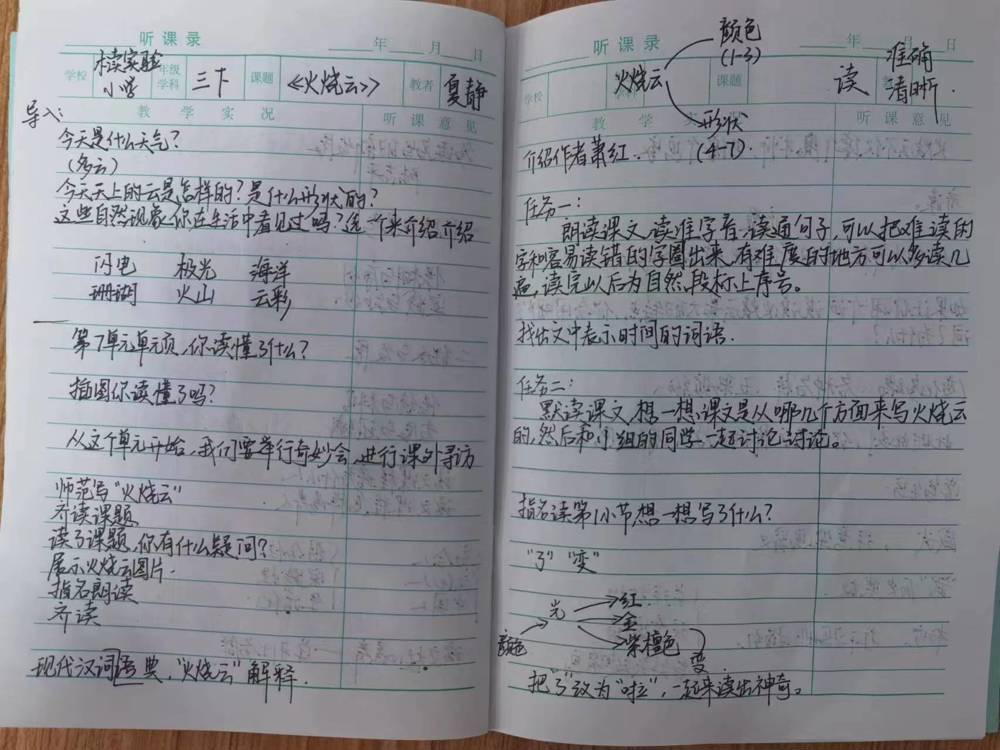 听课录
年 月 日
学校 木渎实验小学 年级学科 三下 课题 《火烧云》 教者 夏静
教学实况 听课意见
导入:
今天是什么天气?
(多云)
今天天上的云是怎样的?是什么形状的?
这些自然现象,你在生活中看见过吗?选一个来介绍介绍
闪电 极光 海洋
珊瑚 火山 云彩
第7单元单元页,你读懂了什么?
插图你读懂了吗?
从这个单元开始,我们要举行奇妙会,进行课外寻访
师范写"火烧云"
齐读课题
读了课题,你有什么疑问?
展示火烧云图片.
指名朗读
齐读
现代汉词语典,"火烧云"解释.
听课录
年 月 日
学校 课题
火烧云 颜色 (1-3)
形状 (4-7).
读 准确 清晰.
教学 听课意见
介绍作者萧红.
任务一:
朗读课文,读准字音,读通句子,可以把难读的
字和容易读错的字圈出来,有难度的地方可以多读几
遍,读完以后为自然段标上序号。
找出文中表示时间的词语.
任务二:
默读课文,想一想,课文是从哪几个方面来写火烧云
的,然后和小组的同学一起讨论讨论。
指名读第1小节,想一想写了什么?
"了" "变"
颜色 光 红 金 紫檀色 变
把"了"改为"啦",一起来读出神奇。